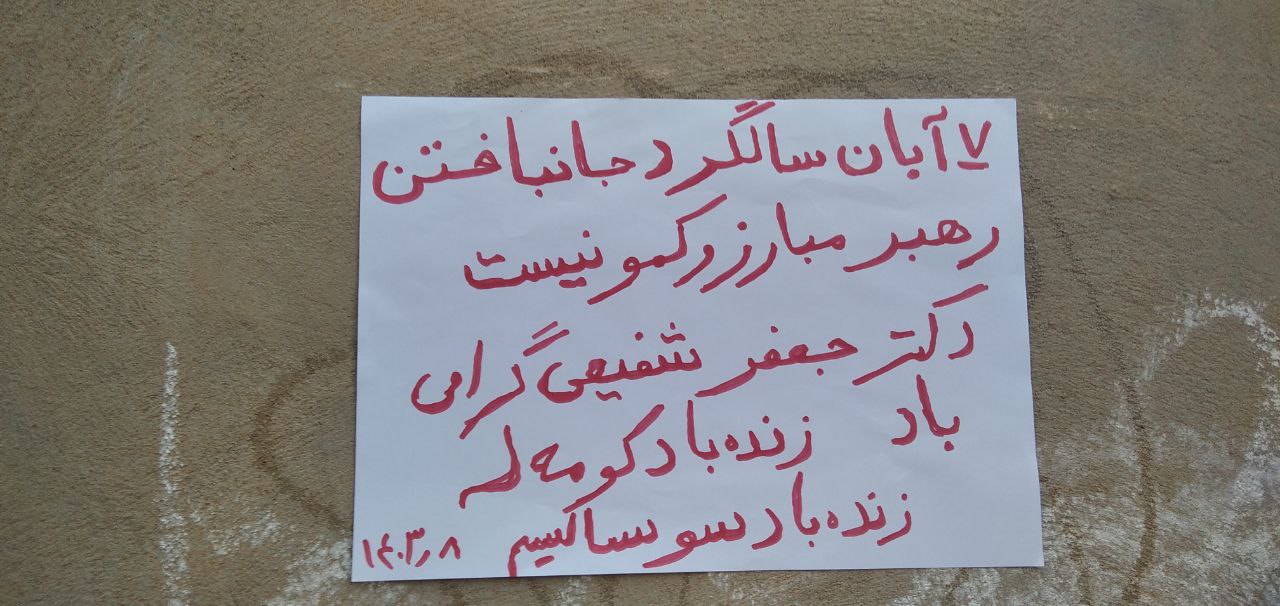 ۷ آبان سالگرد جانباختن
رهبر مبارز و کمونیست
دکتر جعفر شفیعی گرامی
باد زنده باد کومه له
زنده باد سوساکیسم
۱۴۰۳٫۸